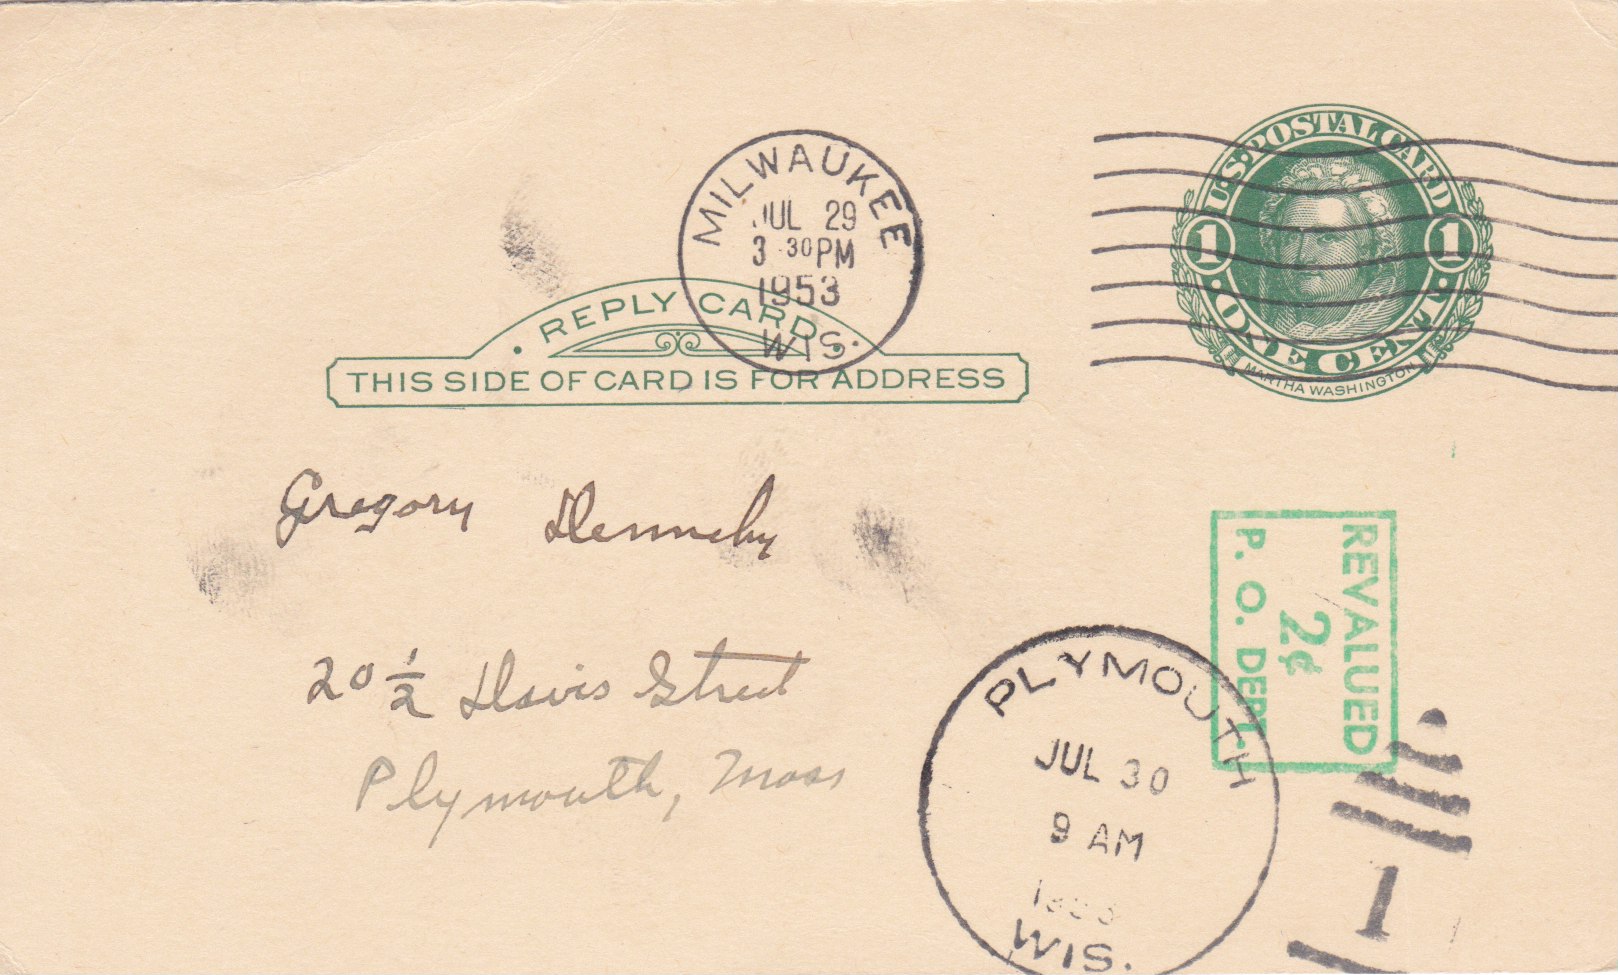 MILWAUKEE
JUL 29
3 30 PM
1953
WIS.
U.S. POSTAL CARD
1 1
ONE CENT
MARTHA WASHINGTON
· REPLY CARD ·
THIS SIDE OF CARD IS FOR ADDRESS
Gregory Dennehy
20 1/2 Davis Street
Plymouth, Mass
REVALUED
2¢
P. O. DEPT.
PLYMOUTH
JUL 30
9 AM
1953
WIS.
1